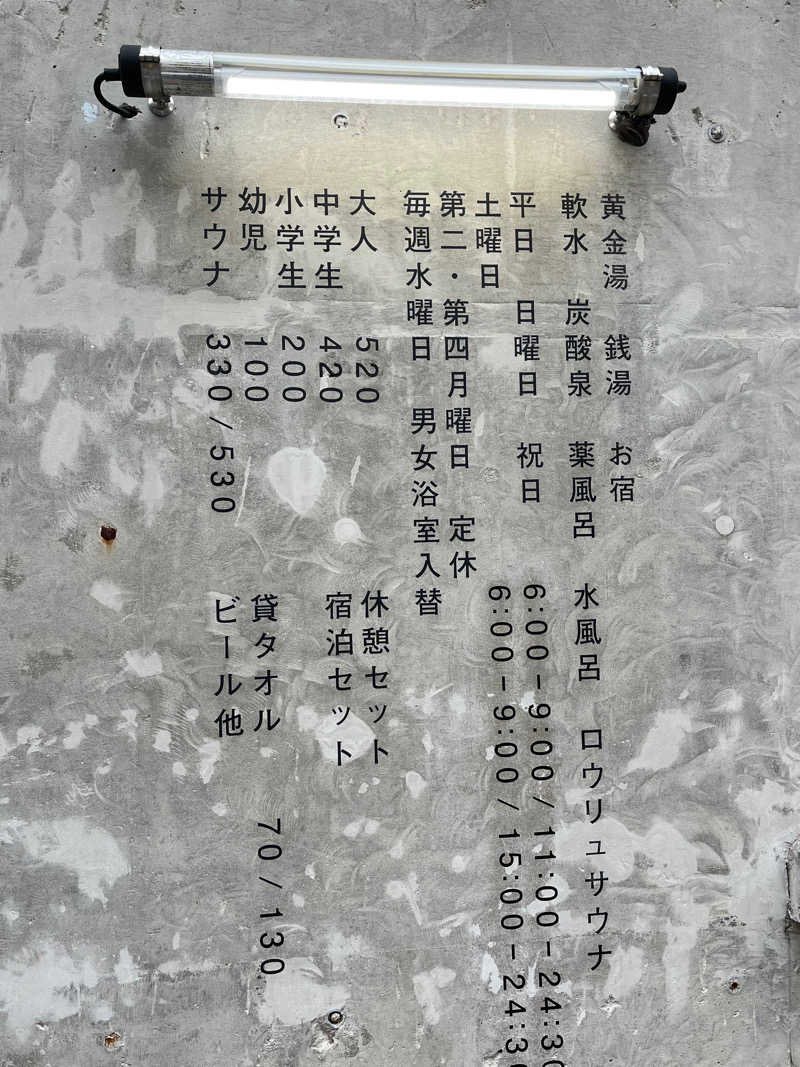 黄金湯　銭湯　お宿
軟水　炭酸泉　薬風呂　水風呂　ロウリュサウナ
平日　日曜日　祝日　6:00-9:00/11:00-24:30
土曜日　6:00-9:00/15:00-24:30
第二・第四月曜日　定休
毎週水曜日　男女浴室入替
大人　520　休憩セット
中学生　420　宿泊セット
小学生　200
幼児　100　貸タオル　70/130
サウナ　330/530　ビール他